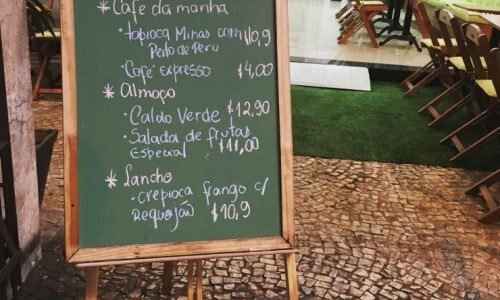 * Café da manha
• tapioca Minas com $10,9
Peito de Peru
• Café expresso $4,00
* Almoço
• Caldo Verde $12,90
• Salada de frutas
Especial $11,00
* Lanche
• Crepioca frango c/
Requeijão $10,9